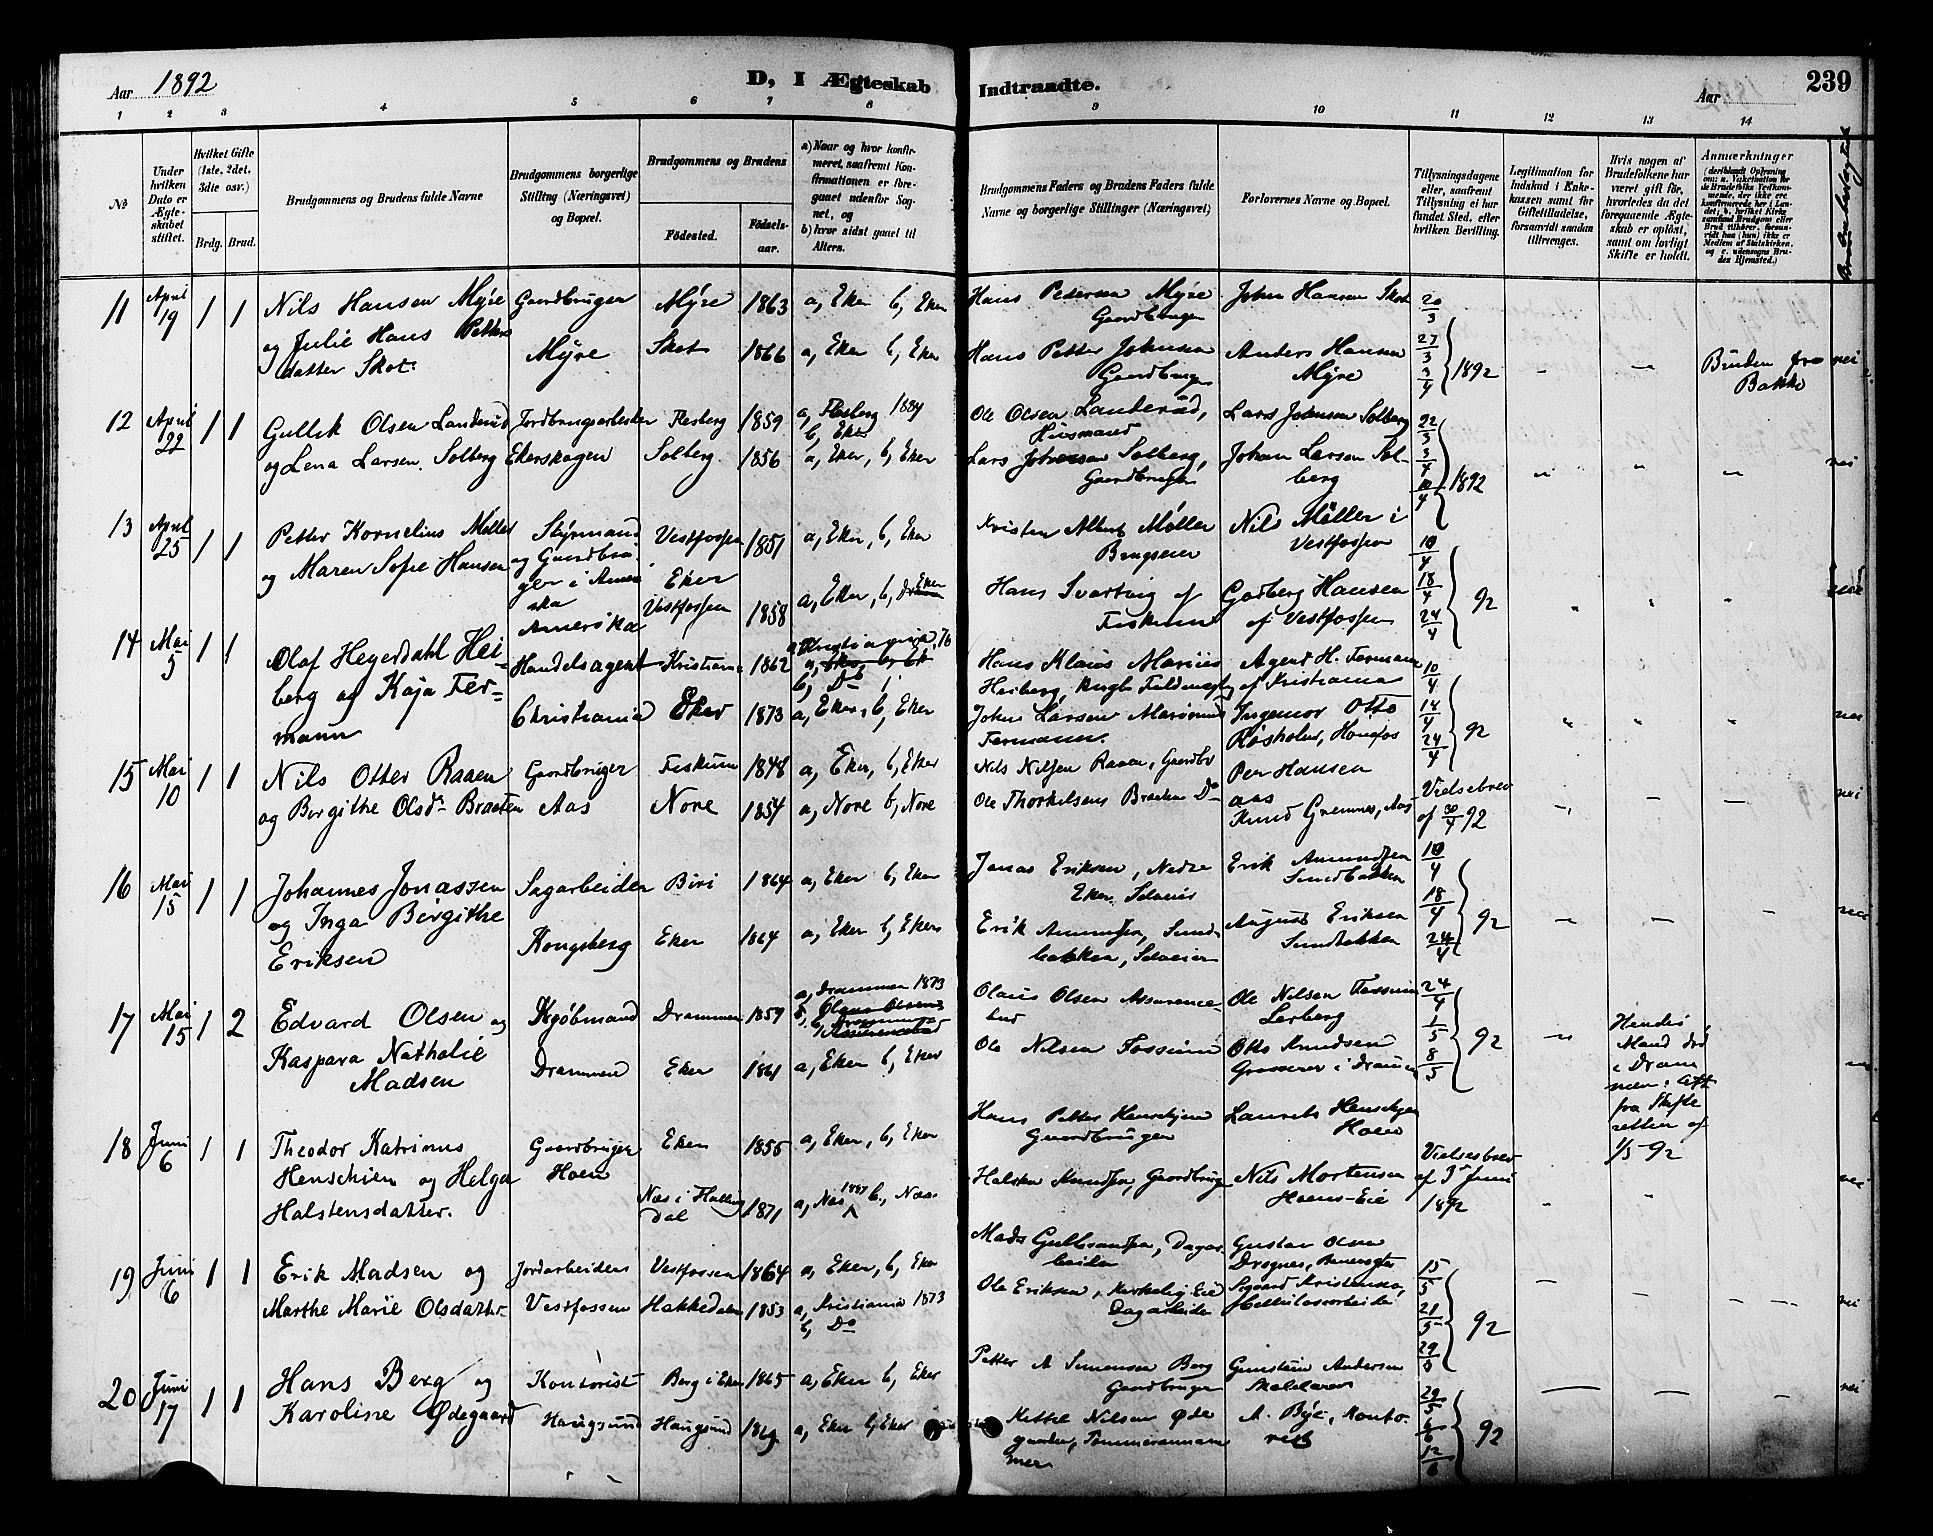 Aar 1892
D, I Ægteskab Indtraadte.
Aar 1892
239
1 2 3 4 5 6 7 8 9 10 11 12 13 14
No
Under hvilken Dato er Ægteskabet stiftet.
Hvilket Gifte (1ste, 2det, 3die osv.)
Brdg. Brud.
Brudgommens og Brudens fulde Navne
Brudgommens borgerlige Stilling (Næringsvei) og Bopæl.
Brudgommens og Brudens
Fødested.
Fødselsaar.
a) Naar og hvor konfirmeret, saafremt Konfirmationen er foregaaet udenfor Sognet, og b) hvor sidst gaaet til Alters.
Brudgommens Faders og Brudens Faders fulde Navne og borgerlige Stillinger (Næringsvei)
Forlovernes Navne og Bopæl.
Tillysningsdagene eller, saafremt Tillysning ei har fundet Sted, efter hvilken Bevilling.
Legitimation for Indskud i Enkekassen samt for Giftetilladelse, forsaavidt saadan tiltrænges.
Hvis nogen af Brudefolkene har været gift før, hvorledes da det foregaaende Ægteskab er opløst, samt om lovligt Skifte er holdt.
Anmærkninger
11 April 19 1 1 Nils Hansen Myre og Julie Hans Petters datter Skot. Gaardbruger Myre
Myre 1863 a, Eker b, Eker
Skot 1866 a, Eker b, Eker
Hans Pedersen Myre Gaardbruger
Hans Petter Johnsen Gaardbruger
John Hansen Skot
Anders Hansen Myre
20/3 27/3 3/4 1892 " " Bruden fra Bakke nei
12 April 22 1 1 Gullik Olsen Landerud og Lena Larsen Solberg Jordbrugsarbeider Ekerskogen
Flesberg 1859 a, Flesberg 1884 b, Eker
Solberg 1856 a, Eker, b, Eker
Ole Olsen Landerud, Husmand
Lars Johnsen Solberg, Gaardbruger
Lars Johnsen Solberg
Johan Larsen Solberg
22/3 3/4 10/4 1892 " " " nei
13 April 25 1 1 Petter Kornelius Møller og Maren Sofie Hansen Styrmand og Gaardbruger i Amerika Amerika
Vestfossen 1851 a, Eker, b, Eker
Eker Vestfossen 1858 a, Eker, b, Eker
Kristen Albert Møller Brugseier
Hans Svartvig af Fiskum
Nils Møller i Vestfossen
Godberg Hansen af Vestfossen
10/4 18/4 24/4 92 " " "
14 Mai 5 1 1 Olaf Heyerdahl Heiberg og Kaja Fermann Handelsagent Christiania
Kristiania 1862 a, Kristiania 76 b, Do
Eker 1873 a, Eker, b, Eker
Hans Klaus Marius Heiberg,
John Larsen Fermann.
Agent H. Fermann af Kristiania
Ingeniør Otto Røsholm, Hønefos
10/4 18/4 24/4 92 " " " nei
15 Mai 10 1 1 Nils Otter Raaen og Bergithe Olsdr Braaten Gaardbruger Aas
Fiskum 1848 a, Eker, b, Eker
Nore 1854 a, Nore b, Nore
Nils Nilsen Raaen, Gaardbr
Ole Thorkelsens Braaten Do
Per Hansen Aas
Knud Grennes, Aas
Vielsebrev af 30/4 92 " - - nei
16 Mai 15 1 1 Johannes Jonassen og Inga Birgithe Eriksen Sagarbeider Kongsberg
Biri 1864 a, Eker b, Eker
Eker 1864 a, Eker b, Eker
Jonas Eriksen, Nedre Eker Selveier
Erik Amundsen, Sundbakken, Selveier
Erik Amundsen Sundbakken
August Eriksen Sundbakken
10/4 18/4 24/4 92 - - - nei
17 Mai 15 1 2 Edvard Olsen og Kaspara Nathalie Madsen Kjøbmand Drammen
Drammen 1859 a, Drammen 1873
Eker 1861 a, Eker b, Eker
Olaus Olsen Assurancebud
Ole Nilsen Fossum
Ole Nilsen Fossum Lerberg
Otto Knudsen Grosserer i Drammen
24/4 1/5 8/5 92 " Hendes Mand død i Drammen, Att fra Skifteretten af 1/5 92
18 Juni 6 1 1 Theodor Katrinus Henschien og Helga Halstensdatter. Gaardbruger Hoen
Eker 1856 a, Eker, b, Eker
Næs i Hallingdal 1871 a, Næs 1887 b, Næs
Hans Petter Henschien Gaardbruger
Halsten Knudsen, Gaardbruger
Laurits Henschien Hoen
Nils Mortensen Hoens-Eie
Vielsesbrev af 3die Juni 1892 " " nei
19 Juni 6 1 1 Erik Madsen og Marthe Marie Olsdatter Jordarbeider Vestfossen
Vestfossen 1864 a, Eker, b, Eker
Hakkedalen 1853 a, Kristiania 1873 b, Do
Mads Gulbrandsen, Dagarbeider
Ole Eriksen, Kirkelig Eie Dagarbeider
Gustav Olsen
Sigurd Kristensen, Cellulosearbeider
15/5 21/5 29/5 92 - - - nei
20 Juni 17 1 1 Hans Berg og Karoline Ødegaard Kontorist Haugsund
Berg i Eker 1865 a, Eker b, Eker
Haugsund 1869 a, Eker b, Eker
Petter A Simensen Berg Gaardbruger
Kettil Nilsen Ødegaarden, Tømmermann
Gunstein Andersen
A. Bye, Kontorist
29/5 6/6 12/6 92 - - - nei